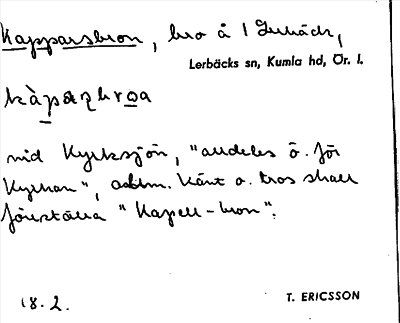 Kapparsbron, bro å 1 Lerbäck,
Lerbäcks sn, Kumla hd, Ör. l.
kàpaʐbroa
vid Kyrksjön, "alldeles ö. för
Kyrkan", allm. känt o. tros skall
föreställa "Kapell-bron".
18.2.
T. ERICSSON